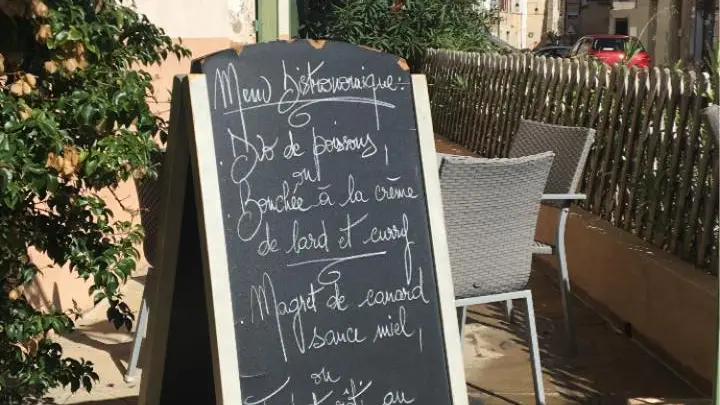 Menu bistronomique :
. Duo de poissons,
ou
. Bouchée à la crème
de lard et curry
. Magret de canard
sauce miel,
ou
rôti au